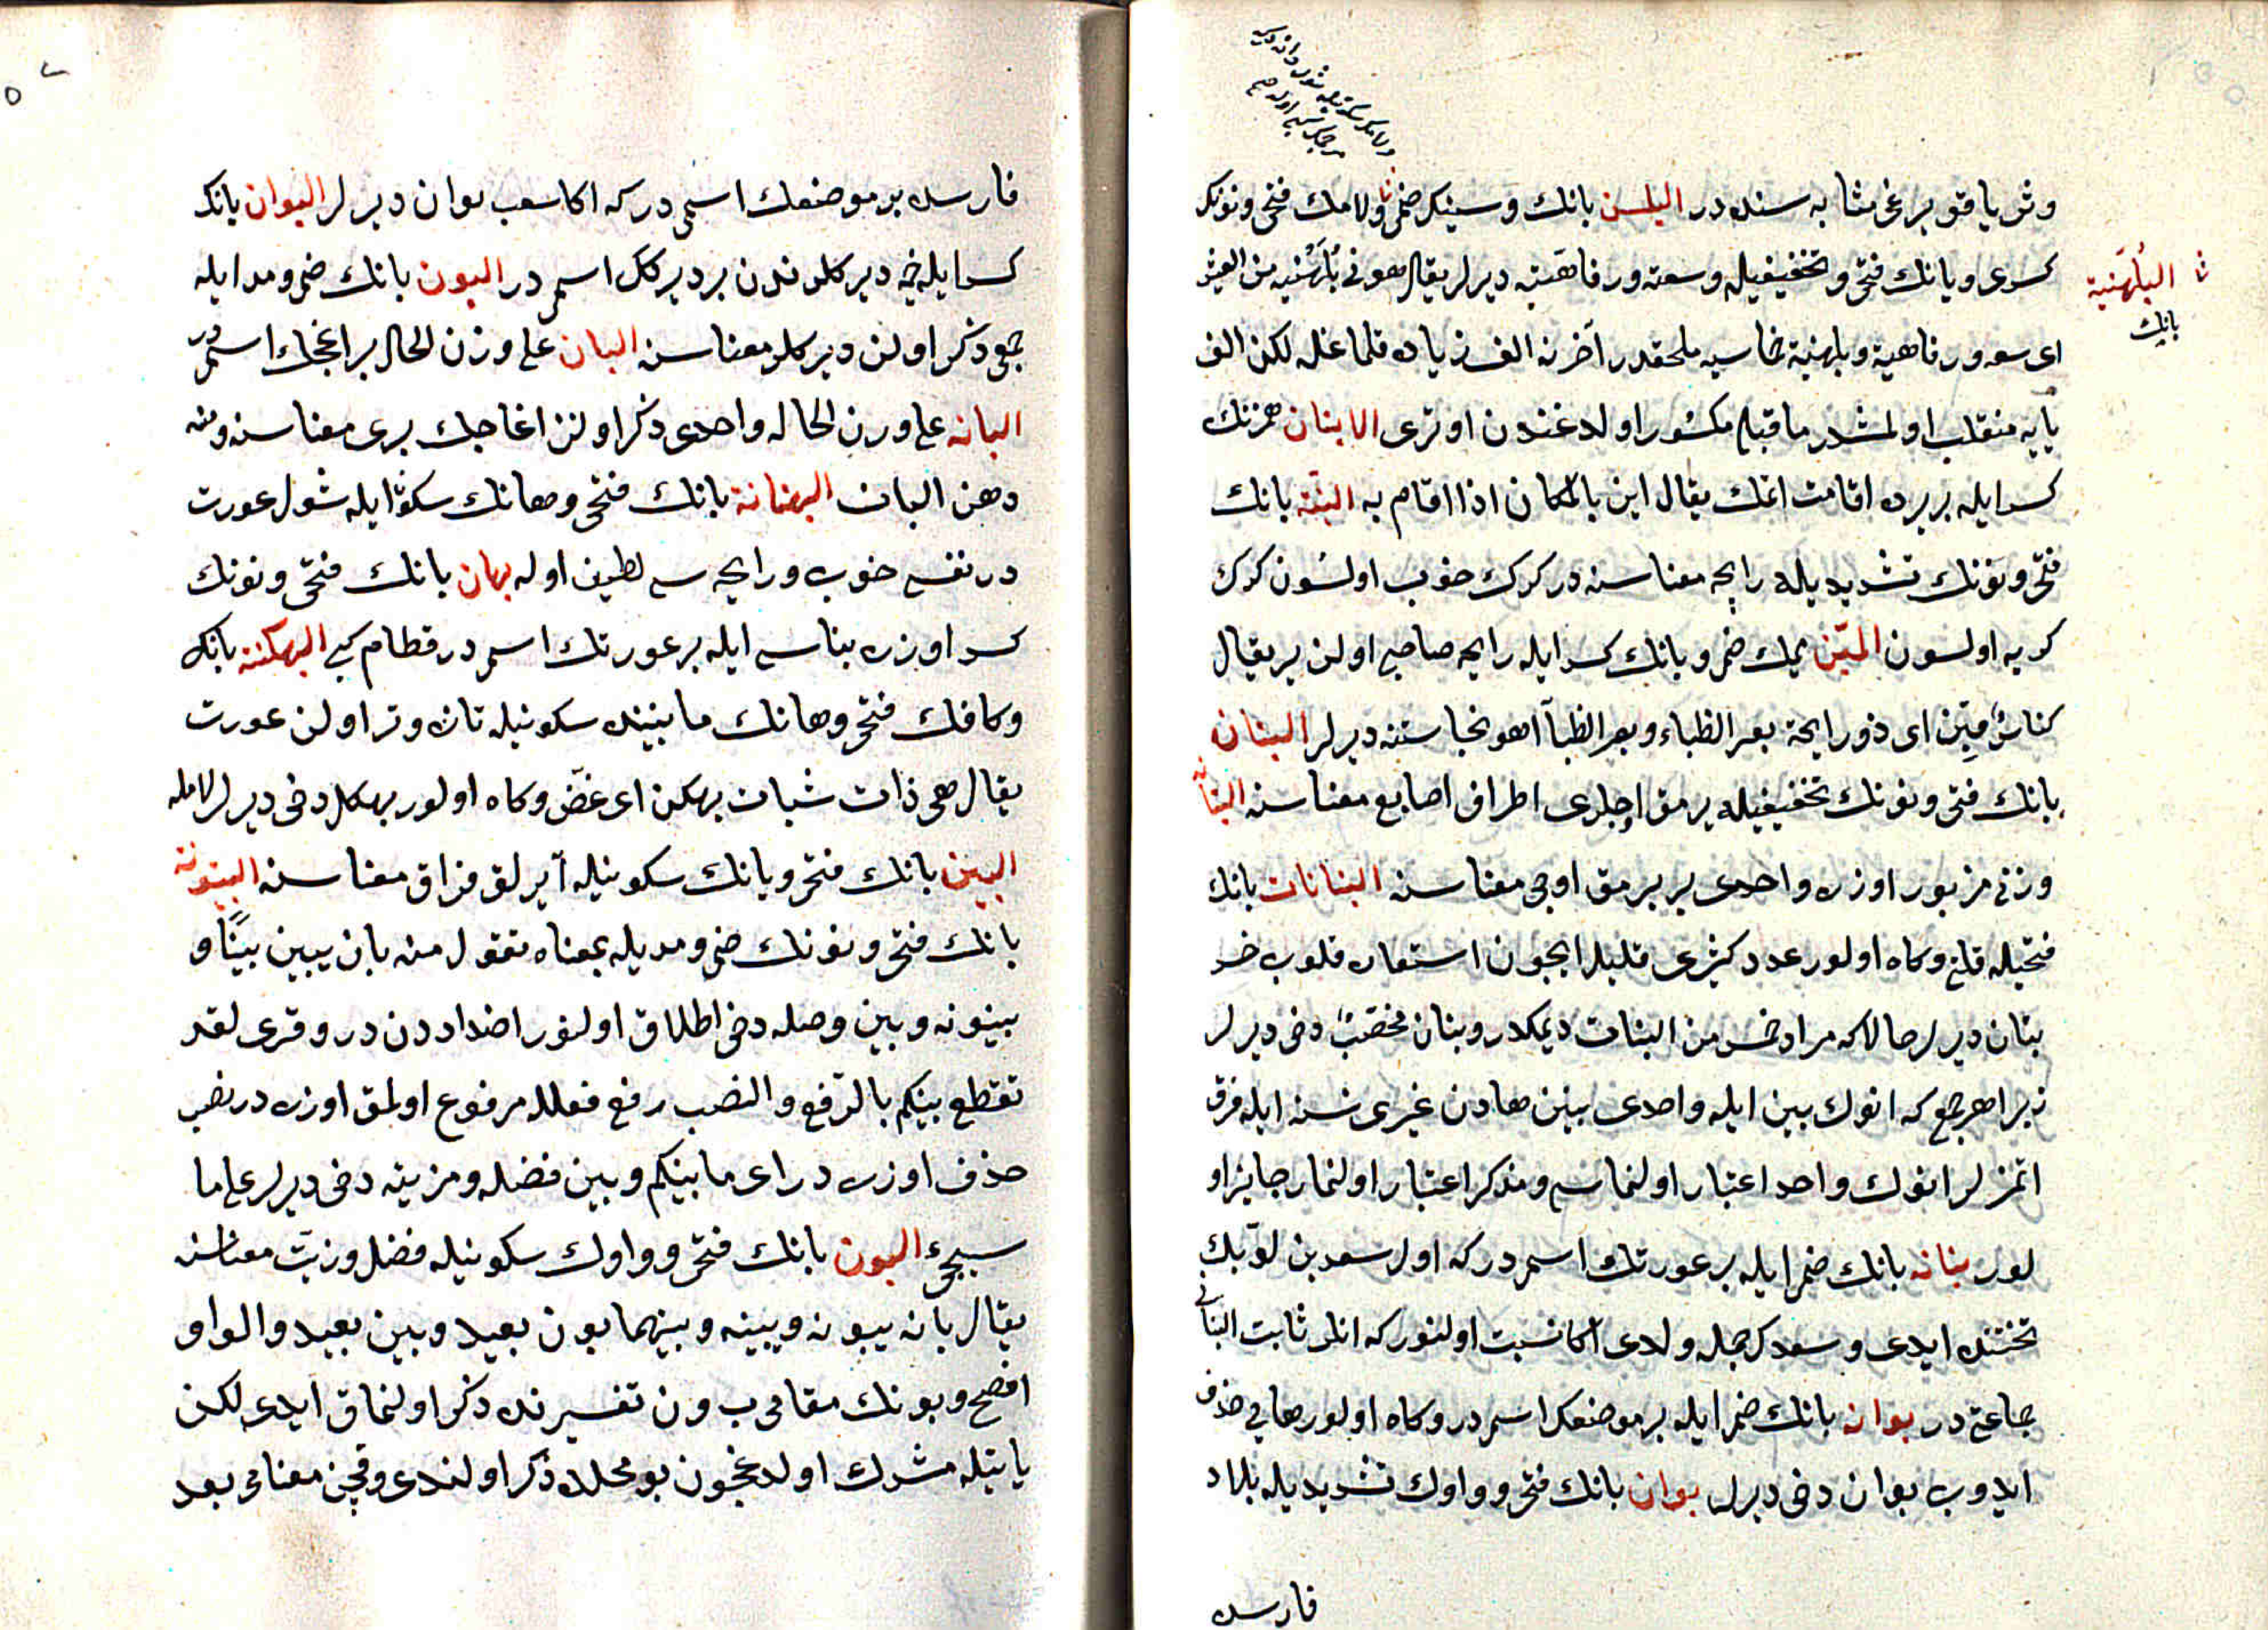 وش يا قو يرغى مشابه سنده در البلسن بانك وسينك ضمى ولامك فتحى ونونك
البُلَهنية
بانك
كسرى ويانك فتحى وتخفيفيله وسعته ورفاهيته ديرلر يقال هو فى بُلَهْنية من العيش
اى سعه ورفاهية وبلهنية خماسيه ملحقدر آخرنه الف زياده قلمغله لكن الف
يايه منقلب اولمشدر ماقبلى مكسور اولدغندن اوترى الابنان همزنك
كسرايله بر يرده اقامت اتمك يقال ابن بالمكان اذا اقام به البنة بانك
فتحى ونونك تشديديله رايحه معناسنه در كرك خوب اولسون كرك
كريه اولسون المبن ميمك ضمى وبانك كسرايله رايحه صاحبى اولن ير يقال
كناس مبن اى ذو رايحة بعر الظباء وبعر الظبآ اهو نجاستنه ديرلر البنان
بانك فتحى ونونك تخفيفيله پرمق اوجلرى اطراف اصابع معناسنه البنانه
وزنى مزبور اوزره واحدى بر پرمق اوجى معناسنه البنانات بانك
فتحيله قلة وكاه اولور عدد كثيرى قليل ايچون استعاره قلوب خمس
بنان ديرلر حالا كه مراد خمس من البنات ديمكدر وبنان مخضب دخى ديرلر
زيرا هر جمع كه انوك بين ايله واحدى بينن هادن غيرى نسنه ايله فرق
اتمزلر انوك واحد اعتبار اولنماسى ومذكر اعتبار اولنمار جايز او
لور بنانه بانك ضمى ايله بر عورتك اسمى در كه اول سعد بن لؤيك
تختنده ايدى وسعدك جمله ولدى اكا نسبت اولنور كه انلر ثابت البنانى
جماعتى در بوانه بانك ضمى ايله بر موضعك اسمى در وكاه اولور هايى حذف
ايدوب بوان دخى ديرلر بوان بانك فتحى وواوك تشديديله بلاد
فارسده
فارسده بر موضعك اسمى در كه اكا شعب بوان ديرلر البوان بانك
كسرايله خيمه ديركلرندن بر ديركك اسمى در البون بانك ضمى ومد ايله
جمعى ذكر اولن ديركلر معناسنه البان على وزن الحال بر اغاجك اسمى در
البانه على وزن الحاله واحدى ذكر اولنن اغاجك برى معناسنه ومنه
دهن البان البهنانة بانك فتحى وهانك سكونى ايله شول عورت
در نفسى خوب ورايحه سى لطيف اوله بهان بانك فتحى ونونك
كسر اوزره بناسى ايله بر عورتك اسمى در قطام كبى البهكنة بانك
وكافك فتحى وهانك مابيننده سكونيله تازه وتر اولن عورت
يقال هى ذات شباب بهكن اى غضّ وكاه اولور بهكل دخى ديرلر لامله
البين بانك فتحى ويانك سكونيله آيرلق فراق معناسنه البينونة
بانك فتحى ونونك ضمى ومديله بمعناه تقول منه بان يبين بينًا و
بينونه وبين وصله دخى اطلاق اولنور اضداددن در وقرى لقد
تقطع بينكم بالرّفع والنصب رفع فعلله مرفوع اولمق اوزره در نصب
حذف اوزره در اى ما بينكم وبين فضله ومزيته دخى ديرلر على ما
سيجىء البون بانك فتحى وواوك سكونيله فضل ومزيت معناسنه
يقال بانه يبونه ويبينه وبينهما بون بعيد وبين بعيد والواو
افصح وبونك مقامى ب ون تفسيرنده ذكر اولنماق ايدى لكن
يابيله مشترك اولدغيچون بو محلده ذكر اولندى وقچن معناى بعد